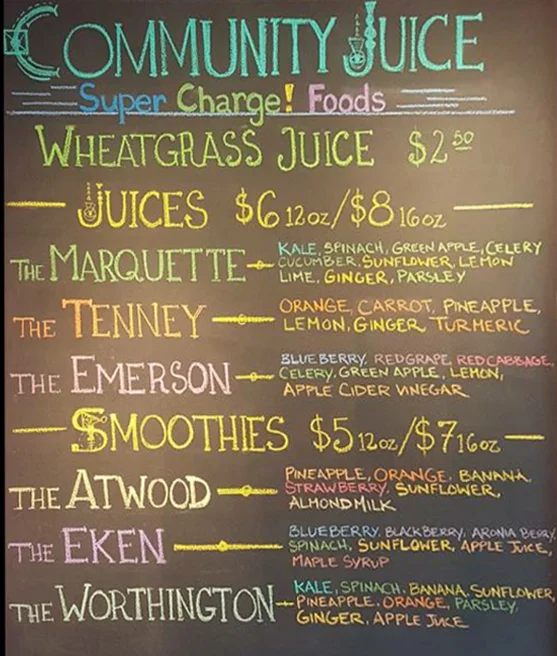 COMMUNITY JUICE
Super Charge! Foods
WHEATGRASS JUICE $2 50
JUICES $6 12oz/$8 16oz
THE MARQUETTE KALE, SPINACH, GREEN APPLE, CELERY
CUCUMBER, SUNFLOWER, LEMON
LIME, GINGER, PARSLEY
THE TENNEY ORANGE, CARROT, PINEAPPLE,
LEMON, GINGER TURMERIC
THE EMERSON BLUEBERRY, RED GRAPE, RED CABBAGE,
CELERY, GREEN APPLE, LEMON,
APPLE CIDER VINEGAR
SMOOTHIES $5 12oz/$7 16oz
THE ATWOOD PINEAPPLE, ORANGE, BANANA,
STRAWBERRY, SUNFLOWER,
ALMOND MILK
THE EKEN BLUEBERRY, BLACKBERRY, ARONIA BERRY,
SPINACH, SUNFLOWER, APPLE JUICE,
MAPLE SYRUP
THE WORTHINGTON KALE, SPINACH, BANANA, SUNFLOWER,
PINEAPPLE, ORANGE, PARSLEY,
GINGER, APPLE JUICE